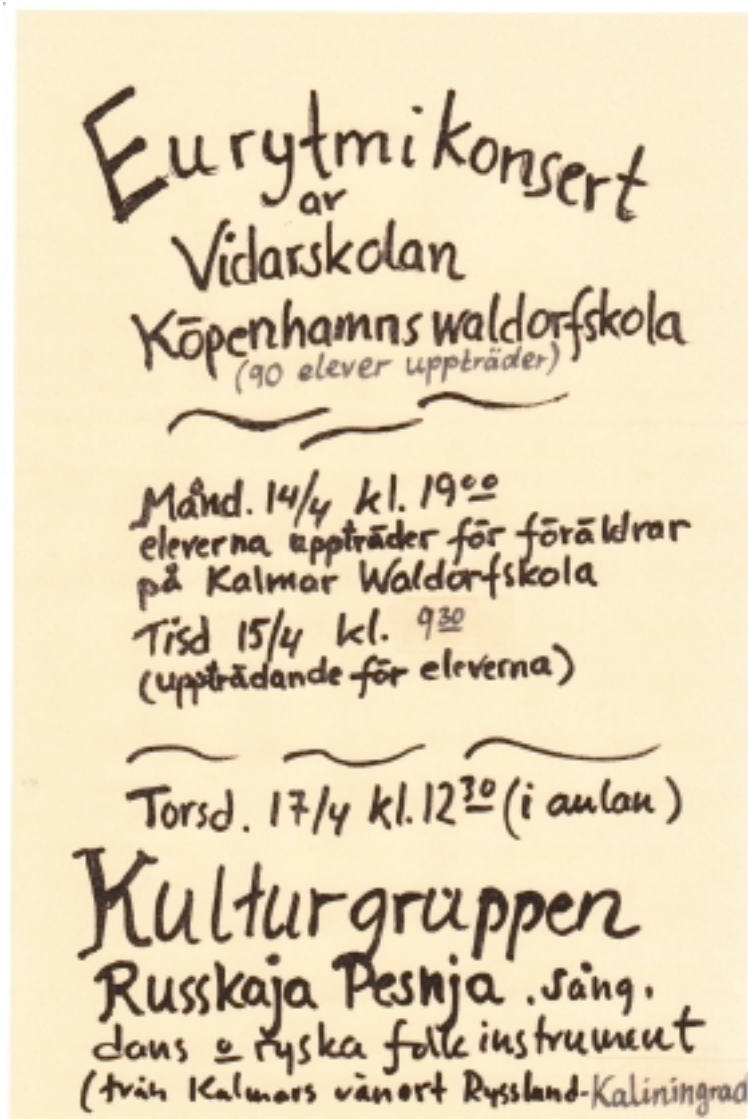 Eurytmikonsert
av
Vidarskolan
Köpenhamns waldorfskola
(90 elever uppträder)
Månd. 14/4 kl. 19⁰⁰
eleverna uppträder för föräldrar
på Kalmar Waldorfskola
Tisd 15/4 kl. 9³⁰
(uppträdande för eleverna)
Torsd. 17/4 kl. 12³⁰ (i aulan)
Kulturgruppen
Russkaja Pesnja . sång.
dans o ryska folkinstrument
(från Kalmars vänort Ryssland-Kaliningrad